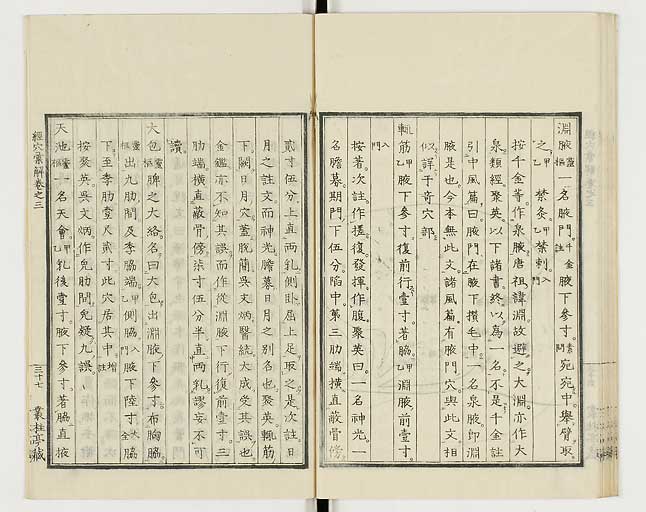 淵腋靈樞一名腋門千金腋下參寸素問宛宛中舉臂取
之甲乙禁灸甲乙禁刺入門
按千金等作泉腋唐祖諱淵故避之大淵亦作大
泉類經聚英以下諸書終以為一名不是千金註
引中風篇曰腋門在腋下攢毛中一名泉腋即淵
腋是也今本無此文諸風篇有腋門穴與此文相
似詳于奇穴部
輒筋甲乙腋下參寸復前行壹寸著脇甲乙淵腋前壹寸
入門
按著次註作搓復發揮作腹聚英曰一名神光一
名膽募期門下伍分陷中第三肋端橫直蔽骨傍
貳寸伍分上直兩乳側臥屈上足取之是次註日
月之註文而神光膽募日月之別名也聚英輒筋
下闕日月穴蓋脫簡吳文炳醫統大成受其誤也
金鑑亦不知其誤而作從淵腋下行復前壹寸三
肋端橫直蔽骨傍柒寸伍分半直兩乳謬妄不可
讀
大包靈樞脾之大絡名曰大包出淵腋下參寸布胸脇
靈樞出九肋間及季脇端甲乙側脇入門腋下陸寸大全脇
下至季肋壹尺貳寸此穴居其中增註
按聚英吳文炳作九肋間免疑九誤
天池靈樞一名天會甲乙乳後壹寸腋下參寸著脇直掖
經穴彙解卷之三
三十七
叢桂亭藏